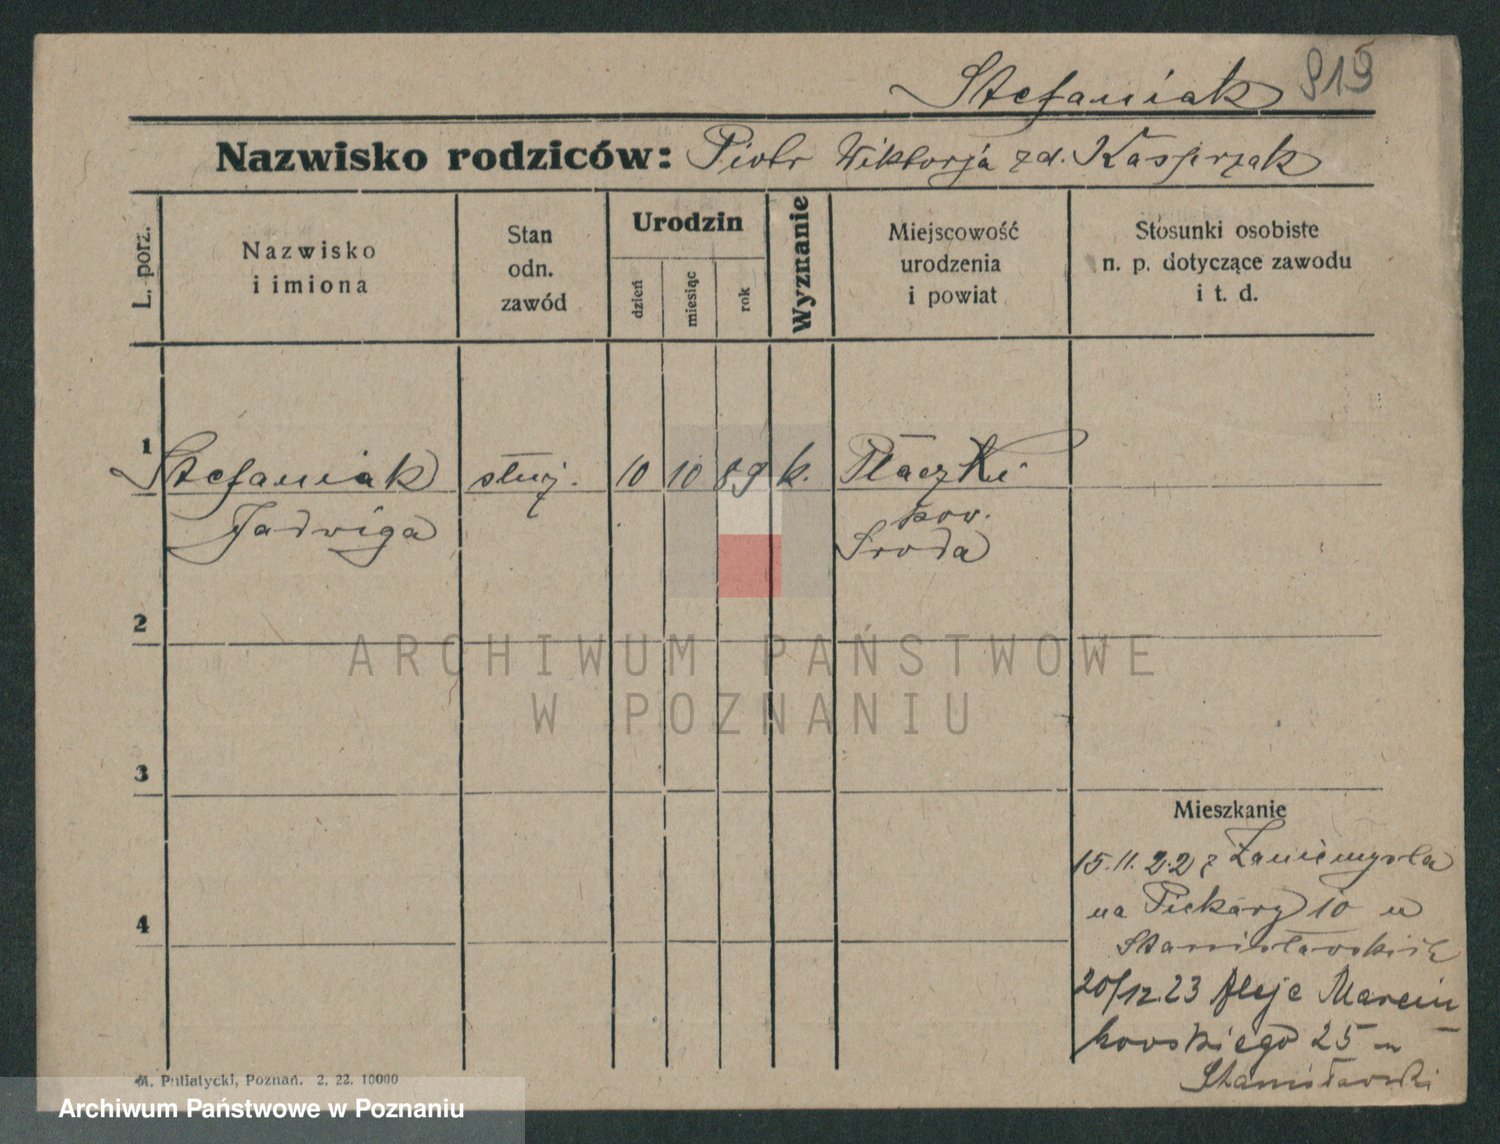 Stefaniak 919
Nazwisko rodziców: Piotr Wiktorja zd. Kasprzak
L. porz.
Nazwisko
i imiona
Stan
odn.
zawód
Urodzin
dzień
miesiąc
rok
Wyznanie
Miejscowość
urodzenia
i powiat
Stosunki osobiste
n. p. dotyczące zawodu
i t. d.
1
Stefaniak służ. 10 10 89 k. Płaczki
pow.
Jadwiga Środa
2
ARCHIWUM PAŃSTWOWE
W POZNANIU
3
Mieszkanie
15.11.22 z Zaniemyśla
na Piekary 10 u
Stanisławskich
4
20/12.23 Aleje Marcin
kowskiego 25
Stanisławski
M. Putiatycki, Poznań. 2. 22. 10000
Archiwum Państwowe w Poznaniu